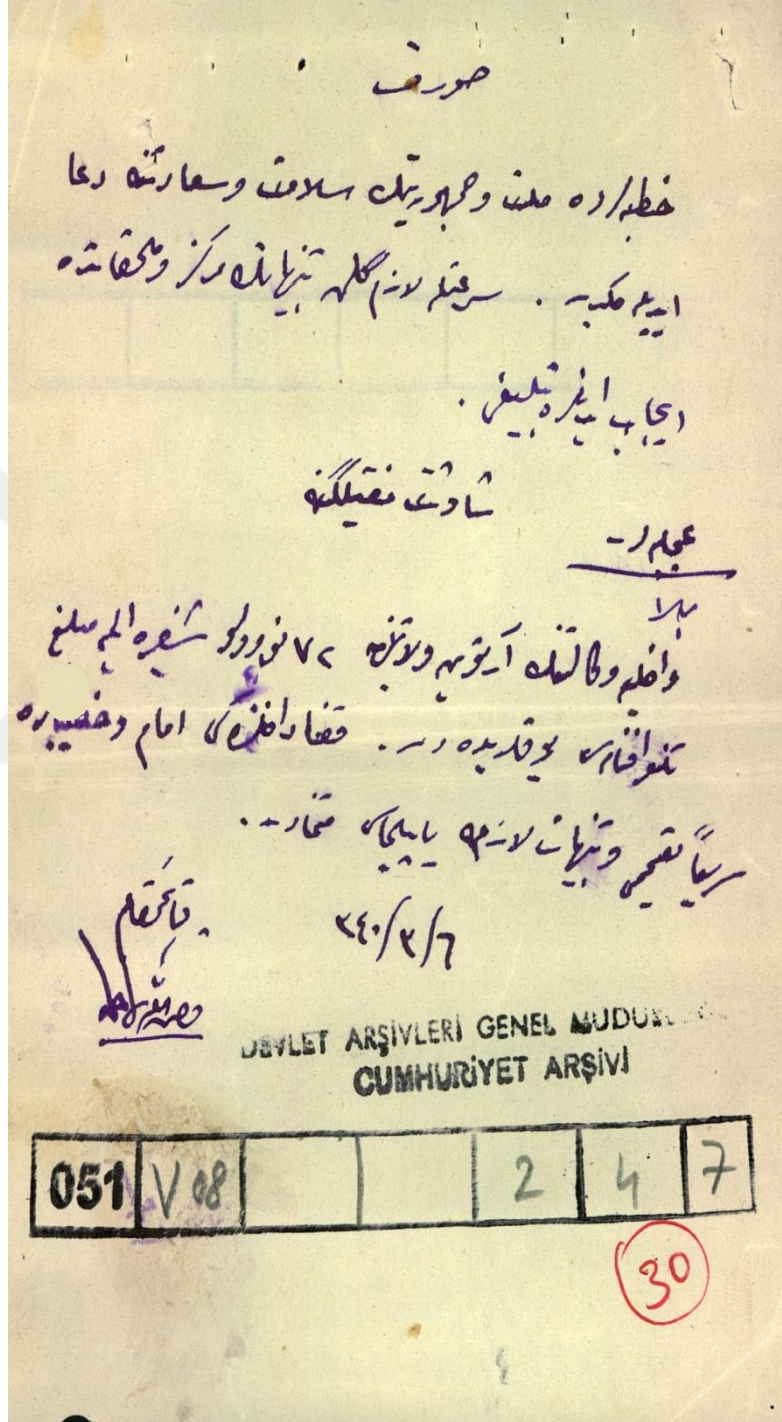 صورت
خطبه‌لرده ملت و جمهوریتك سلامت و سعادتنه دعا
ایدیله‌جكدر . سرعتله لازم كلن تنبیهاتك مركز و ملحقاتده
ایجاب ایدنلره تبلیغی .
شاوشات
عجله‌در
بالا
داخلیه وكالتنك آرتوین ولایتنه ٧٢ نومرولو شفره ایله مبلغ
تلغرافنامه‌سی بر وجه‌ در . قضا داخلنده‌كی امام و خطیبلره
سریعاً و تنبیهات لازمه یاپیلماسی .
٣٤٠/٣/٦
قائمقام
DEVLET ARŞİVLERİ GENEL
CUMHURİYET ARŞİVİ
051 V 08 2 4 7
30